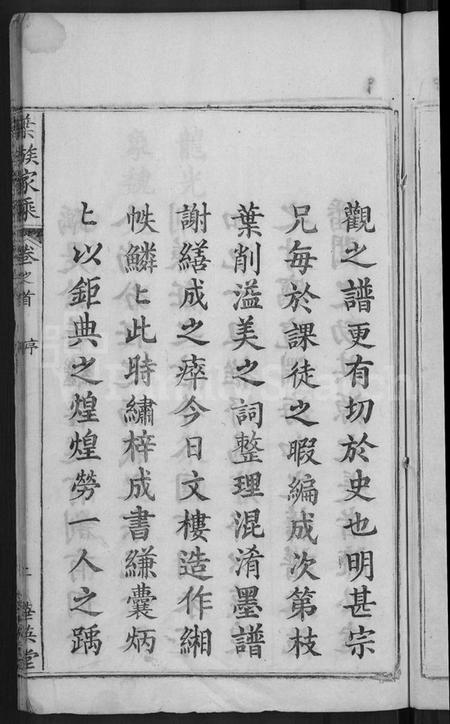 觀之譜更有切於史也明甚宗
兄每於課徒之暇編成次第枝
葉削溢美之詞整理混淆墨譜
謝繕成之瘁今日文樓造作緗
帙鱗〻此時繡梓成書縑囊炳
〻以鉅典之煌煌勞一人之踽
族家乘
卷之首
序
華英堂